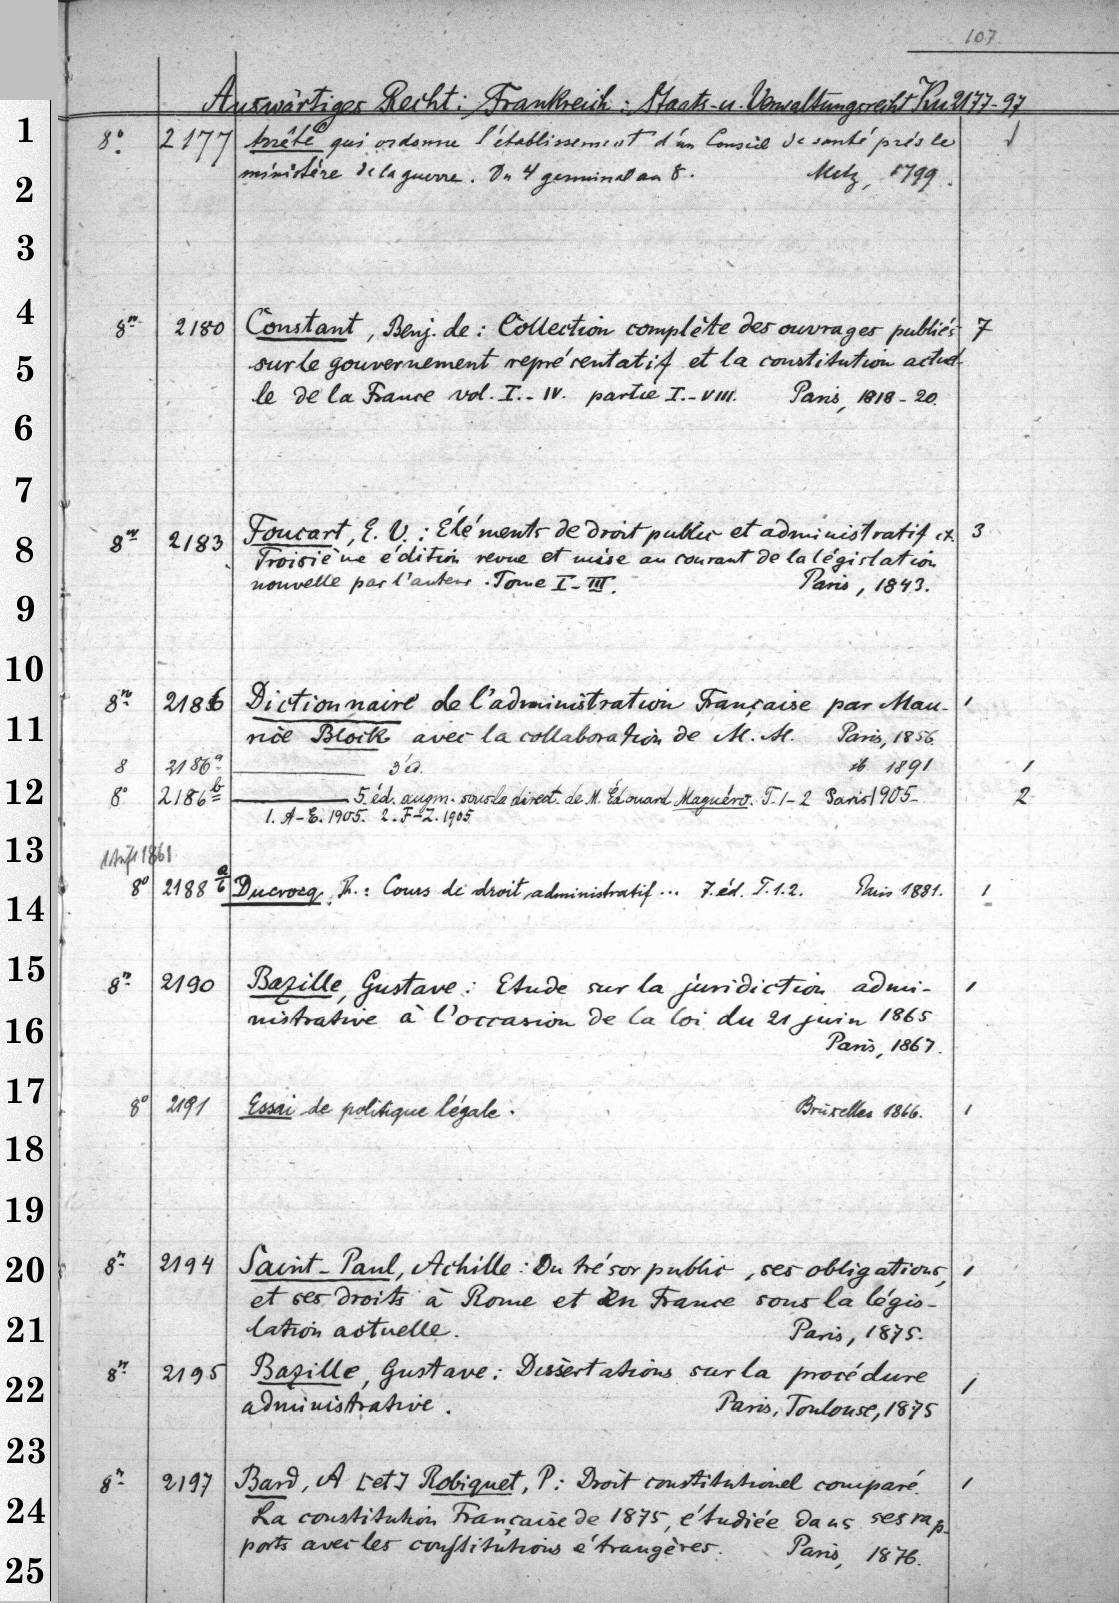 107
Auswärtiges Recht: Frankreich: Staats- u. Verwaltungsrecht Ku 2177-97
1
8° 2177 Arrêté qui ordonne l'établissement d'un Conseil de santé près le
2
ministère de la guerre. Du 4 germinal an 8. Metz, 1799.
3
4
8° 2180 Constant, Benj. de: Collection complète des ouvrages publiés 7
5
sur le gouvernement représentatif et la constitution actuel-
le de la France vol. I.-IV. partie I.-VIII. Paris, 1818-20.
6
7
8
8° 2183 Foucart, E. V.: Eléments de droit public et administratif et. 3
Troisième édition revue et mise au courant de la législation
nouvelle par l'auteur. Tome I-III. Paris, 1843.
9
10
8° 2186 Dictionnaire de l'administration Française par Mau- 1
11
rice Block avec la collaboration de M. M. Paris, 1856.
8 2186a 3 éd. ib 1891 1
12
8° 2186b 5. éd. augm. sous la direct. de M. Édouard Maguéro. T. 1-2 Paris 1905- 2
1. A-E. 1905. 2. F-Z. 1905
13
1861
8° 2188 a/b Ducrocq, Th.: Cours de droit administratif... 7. éd. T. 1.2. Paris 1881. 1
14
15
8° 2190 Bazille, Gustave: Etude sur la juridiction admi- 1
16
nistrative à l'occasion de la loi du 21 juin 1865
Paris, 1867.
17
8° 2191 Essai de politique légale. Bruxelles 1866. 1
18
19
20
8° 2194 Saint-Paul, Achille: Du trésor public, ses obligations, 1
et ses droits à Rome et en France sous la légis-
21
lation actuelle. Paris, 1875.
8° 2195 Bazille, Gustave: Dissertations sur la procédure 1
22
administrative. Paris, Toulouse, 1875
23
8° 2197 Bard, A [et] Robiquet, P: Droit constitutionel comparé. 1
24
La constitution Française de 1875, étudiée dans ses rap-
ports avec les constitutions étrangères. Paris, 1876.
25